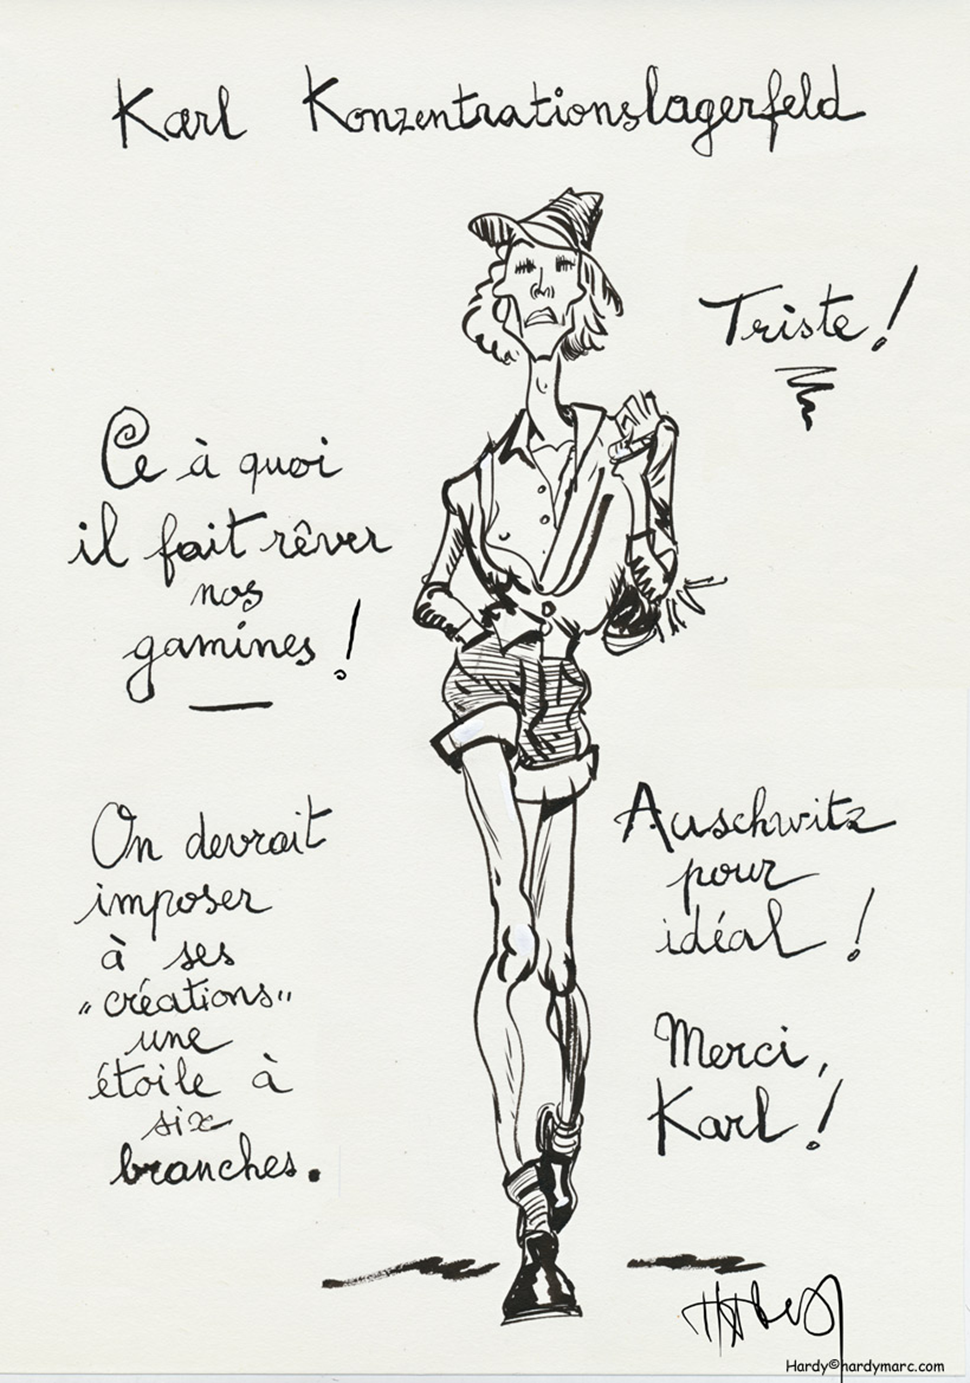 Karl Konzentrationslagerfeld
Triste !
Ce à quoi
il fait rêver
nos
gamines !
On devrait
imposer
à ses
"créations"
une
étoile à
six
branches.
Auschwitz
pour
idéal !
Merci,
Karl !
Hardy
Hardy©hardymarc.com